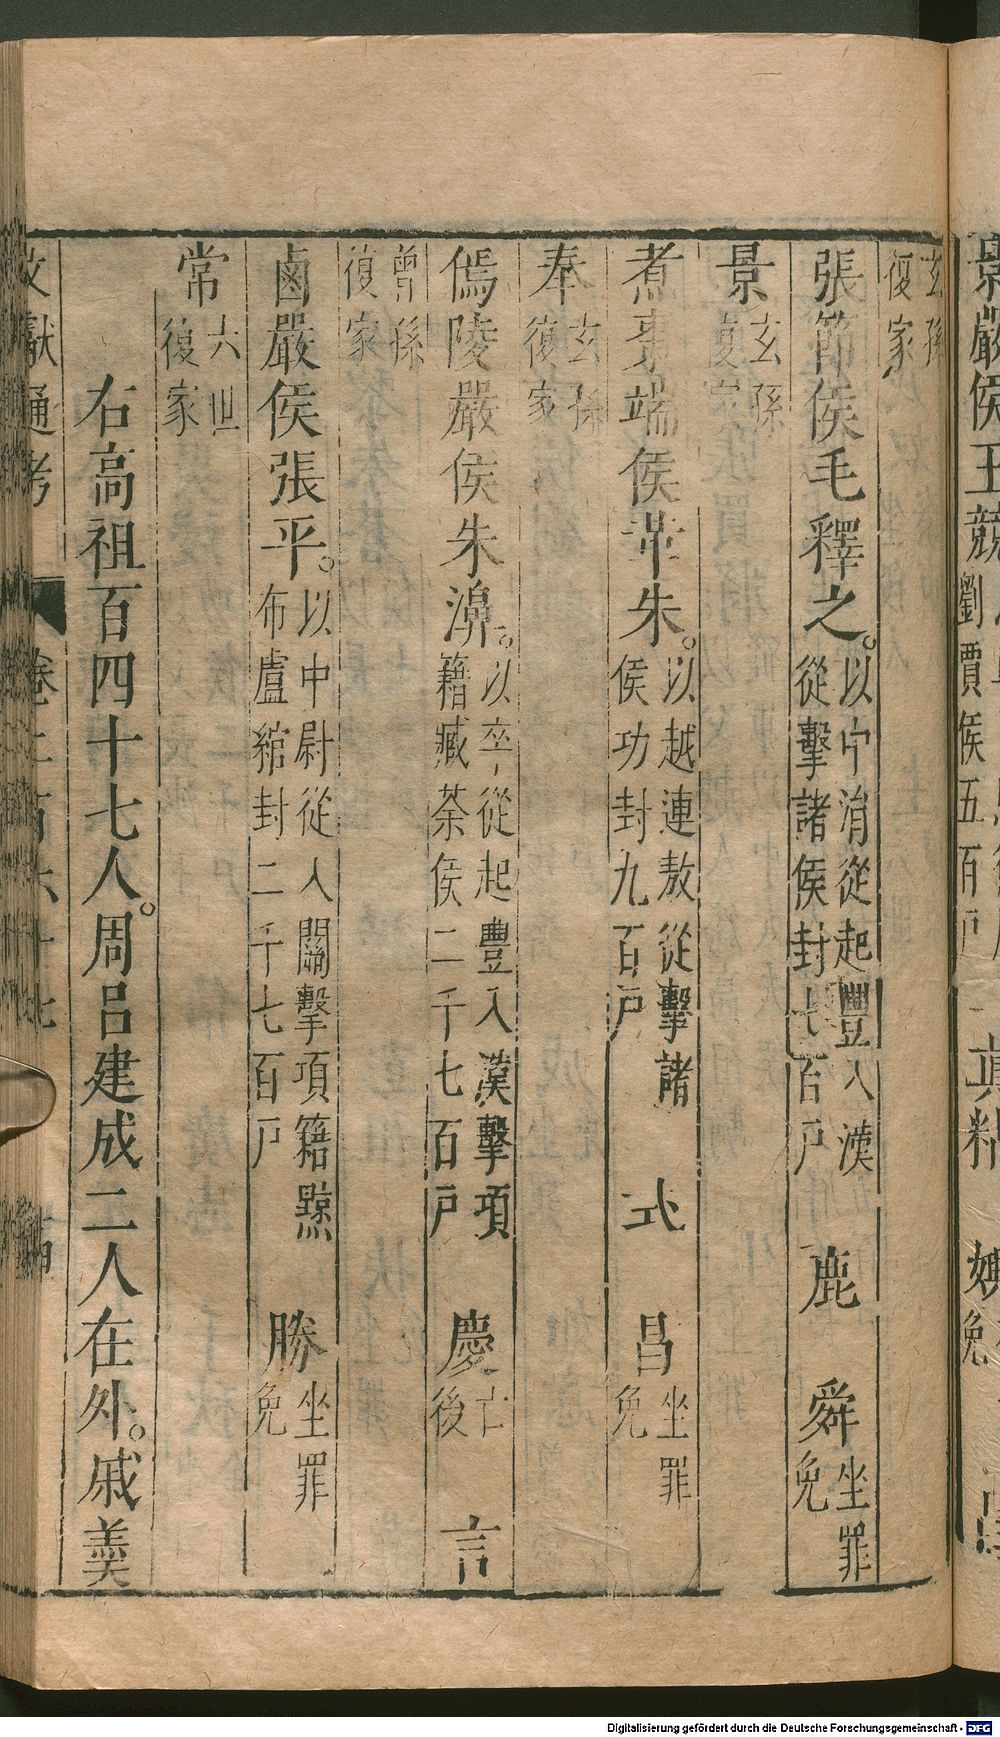 玄孫復家
張節侯毛釋之。以中涓從起豐入漢從擊諸侯封七百戶 鹿 舜坐罪免
景玄孫復家
煮棗端侯革朱。以越連敖從擊諸侯功封九百戶 式 昌坐罪免
奉玄孫復家
傿陵嚴侯朱濞。以卒從起豐入漢擊項籍臧荼侯二千七百戶 慶亡後 言
曾孫復家
鹵嚴侯張平。以中尉從入關擊項籍黥布盧綰封二千七百戶 勝坐罪免
常六世復家
右高祖百四十七人。周呂建成二人在外。戚羹
文獻通考 卷二百六十七
景嚴侯王競
劉賈侯五百戶 真粘 嫫免
Digitalisierung gefördert durch die Deutsche Forschungsgemeinschaft - DFG